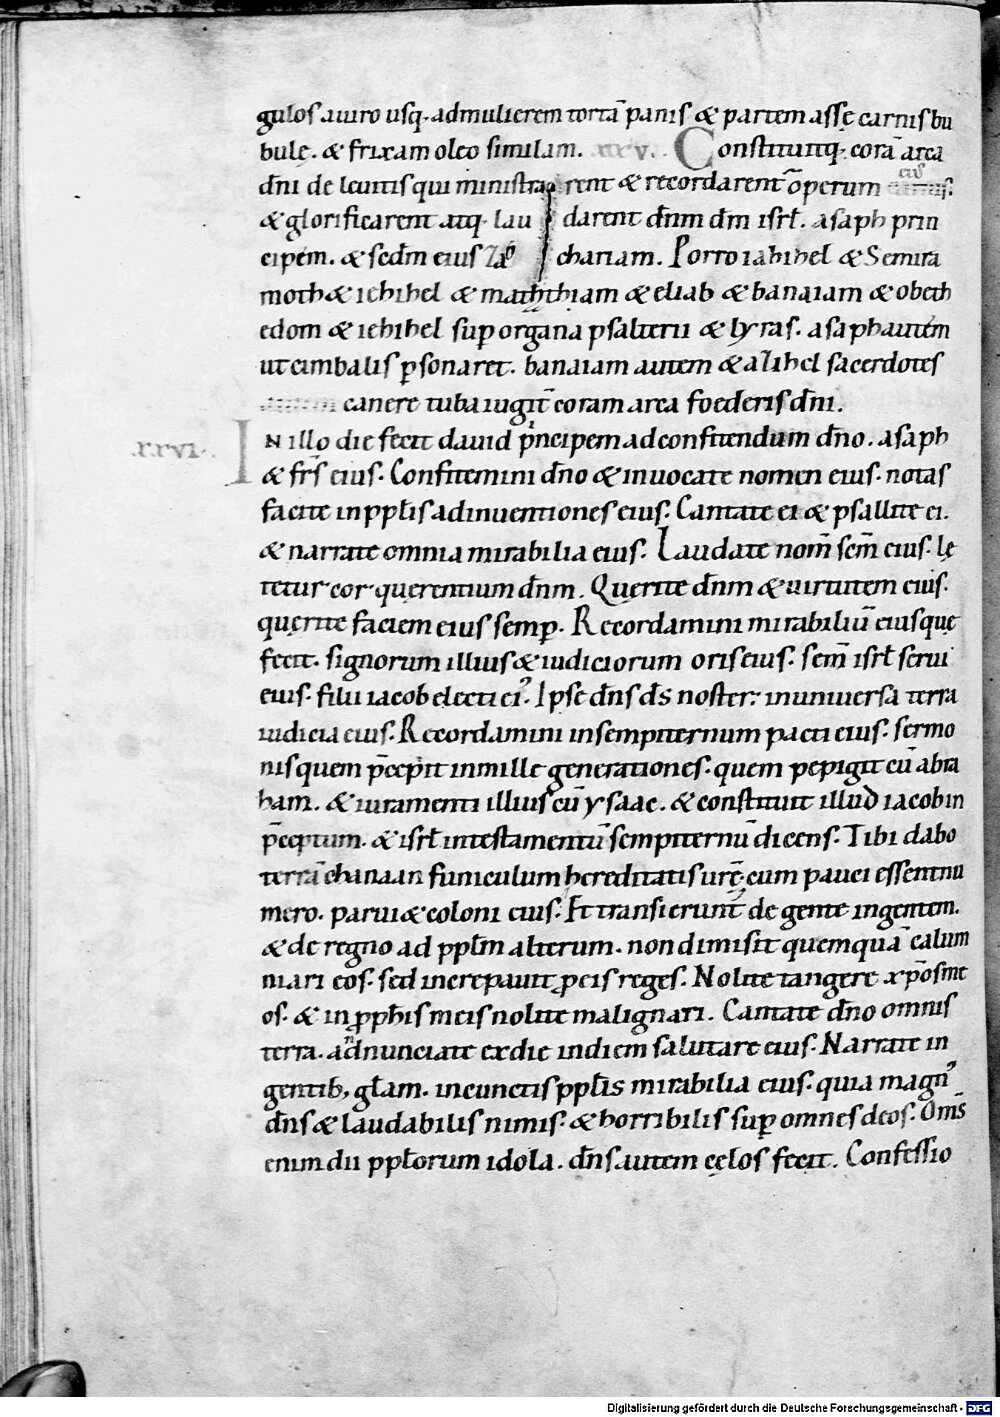 gulos a uiro usq; ad mulierem tortā panis & partem assę carnis bu
bulę. & frixam oleo similam. xxv. Constituitq; corā arca
dn̄i de leuitis qui ministrarent & recordarent operum eius
& glorificarent atq; lau darent dn̄m dm̄ isrł. asaph prin
cipem. & scdm̄ eius Za chariam. Porro iahihel & Semira
moth & iehihel & maththiam & eliab & banaiam & obeth
edom & iehihel sup organa psalterii & lyras. asaph autem
ut cimbalis psonaret. banaiam autem & azihel sacerdotes
canere tuba iugit̄ coram arca foederis dn̄i.
xxvi. IN illo die fecit dauid pⁱncipem ad confitendum dn̄o. asaph
& fr̄s eius. Confitemini dn̄o & inuocate nomen eius. notas
facite in pplīs adinuentiones eius. Cantate ei & psallite ei.
& narrate omnia mirabilia eius. Laudate nom̄ scm̄ eius. lę
tetur cor querentium dn̄m. Quęrite dn̄m & uirtutem eius.
quęrite faciem eius semp. Recordamini mirabiliū eius quę
fecit. signorum illius & iudiciorum oris eius. sem̄ isrł serui
eius. filii iacob electi ei᾽. Ipse dn̄s ds̄ noster. in uniuersa terra
iudicia eius. Recordamini in sempiternum pacti eius. sermo
nis quem p̄cepit in mille generationes. quem pepigit cū abra
ham. & iuramenti illius cū ysaac. & constituit illud iacob in
p̄ceptum. & isrł in testamentū sempiternū dicens. Tibi dabo
terrā chanaan funiculum hereditatis urę̄. cum pauci essent nu
mero. parui & coloni eius. Et transierunt de gente in gentem.
& de regno ad pplm̄ alterum. non dimisit quemquā calum
niari eos. sed increpauit p eis reges. Nolite tangere xp̄os me
os. & in pphīs meis nolite malignari. Cantate dn̄o omnis
terra. adnunciate ex die in diem salutare eius. Narrate in
gentib; głam. in cunctis pplīs mirabilia eius. quia magn᾽
dn̄s & laudabilis nimis. & horribilis sup omnes deos. Om̄s
enim dii pplōrum idola. dn̄s autem cęlos fecit. Confessio
Digitalisierung gefördert durch die Deutsche Forschungsgemeinschaft - DFG